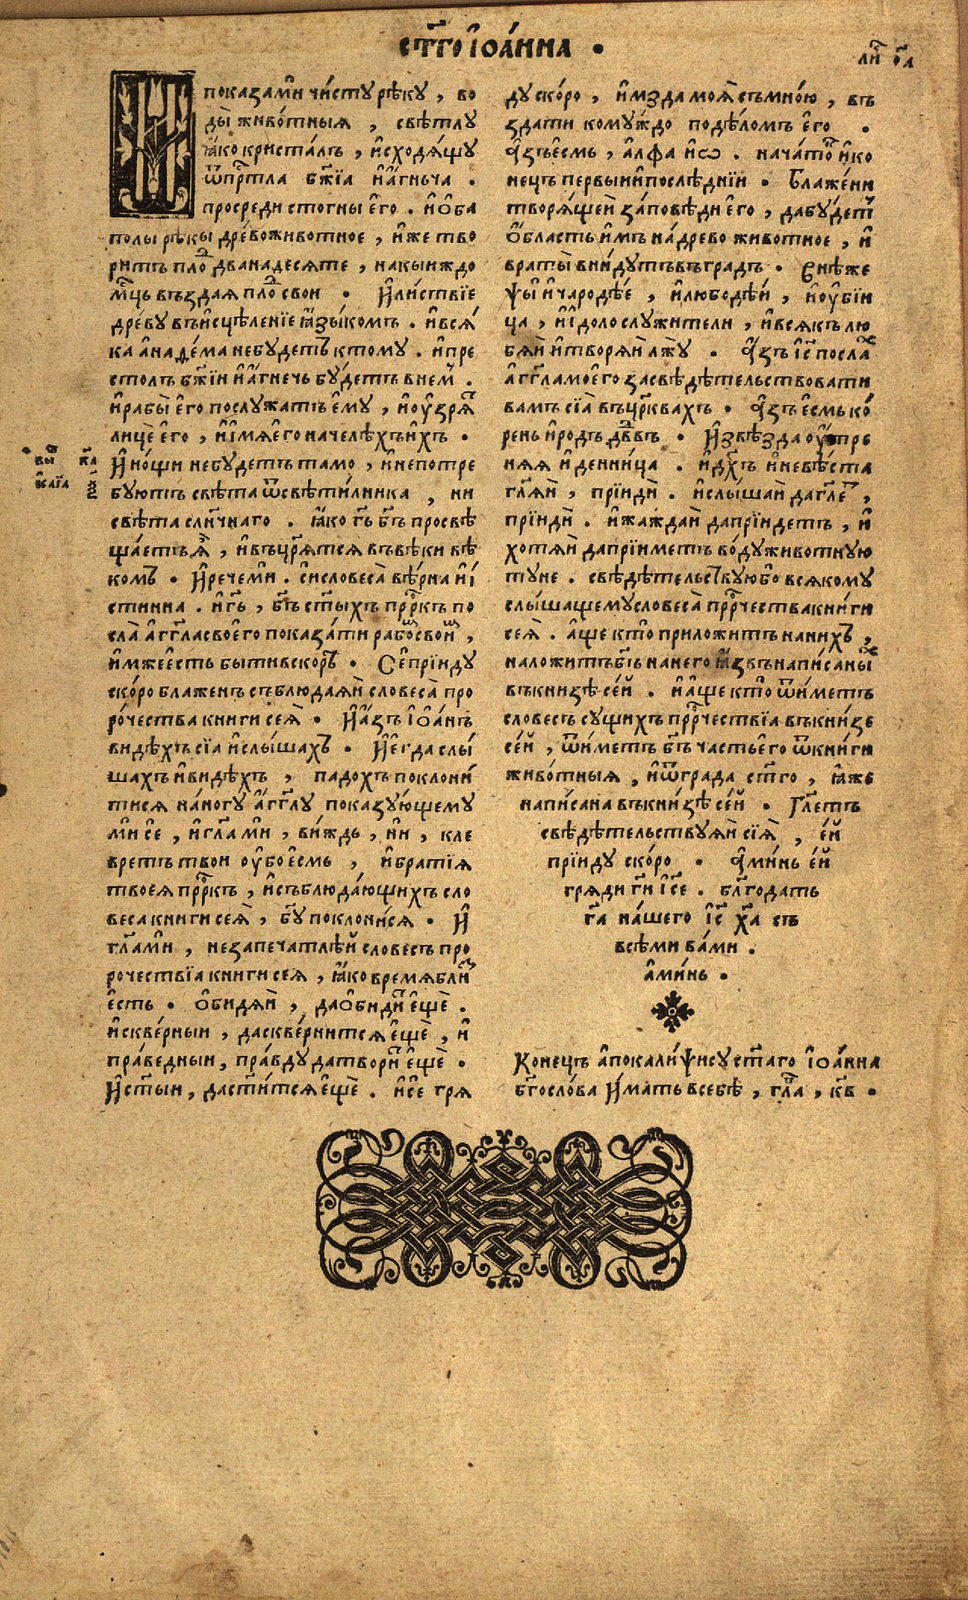 ст҃го і҆оа́нна •
ли҃ о҃а
И
показами чи́сту рѣку , во
ды живо́тныѧ , свѣтлу
ꙗко кристалъ , и҆сходѧщу
ѿ прⷭ҇тла бж҃їа и҆ а҆гньча .
просреди стогны є҆го . и҆ ѻ҆ба
полы рѣкы дре́во животное , и҆же тво
ритъ плоⷣ дванадесѧте , на кыиждо
мцⷭ҇ь въздаѧ плоⷣ свои • И҆ листвїе
дре́ву въ и҆сцѣленїе ꙗ҆зы́комъ . и҆ всѧ́
ка а҆наѳема небудетъ ктому . и҆ пре
столъ бж҃їи и҆ а҆гнечь бу́детъ в нем .
и҆ рабы̀ є҆го послужатъ є҆му , и҆ ѹ҆зрѧⷮ
лицѐ є҆го , и҆ и҆мѧ є҆го на челѣхъ и҆хъ •
И҆ но́щи не будетъ тамо , и҆ не потре
буютъ свѣта ѿ свѣти́лника , ни
свѣта слн҃чнаго . ꙗ҆ко гь҃ бг҃ъ просвѣ
ща́етъ ѧ҆̀ , и҆ въцр҃ѧтсѧ въ вѣки вѣ
комъ • И҆ рече ми . сѝ словеса̀ вѣрна и҆ і҆
стинна . и҆ гь҃ , бг҃ъ ст҃ыхъ прⷪ҇ркъ по
сла̀ а҆гг҃ла своего показа́ти рабоⷨ свои ,
и҆мже є҆сть быти вскоръ • Сѐ прїиду
ско́ро блаженъ съблюдаѧй словеса̀ про
ро́чества книги сеѧ̀ • И҆ а҆зъ і҆ѻ҆анъ
видѣхъ сїа и҆ слышахъ • И҆ є҆гда слы́
шахъ и҆ видѣхъ , падохъ поклони́
тисѧ на́ ногу а҆гг҃лу показу́ющему
мѝ се , и҆ гл҃а мѝ , ви́ждь , ни , кле
вретъ твои ѹ҆бо є҆смь , и҆ братїѧ
твоеѧ прⷪ҇ркъ , и҆ съблюда́ющихъ сло
веса книги сеѧ̀ , бг҃у поклонисѧ • И҆
гл҃а мѝ , не запечатлѣй словесъ про
рочествїа книги сеѧ , ꙗ҆ко времѧ блиⷥ
є҆сть • ѻ҆бидѧй , да ѻ҆бидиⷮ є҆щѐ .
и҆ скве́рныи , да скве́рнитсѧ є҆щѐ , и҆
пра́ведныи , пра́вду да твориⷮ є҆щѐ •
И҆ ст҃ыи , да ст҃и́тсѧ є҆щѐ . и҆ сѐ грѧ
ду ско́ро , и҆ мзда моѧ̀ съ мно́ю , въ
здати кому́ждо по дѣ́ломъ є҆го •
а҆́зъ є҆смь , а҆́лфа и҆ ѡ . нача́тоⷦ и҆ ко
нець первыи и҆ послѣднїи • Блаже́ни
творѧ́щеи за́повѣди є҆го , да бу́детⷮ
ѻ҆бласть и҆мъ на́ древо животное , и҆
враты̀ вни́дутъ въ градъ • Внѣ же
ѱы̀ и҆ чародѣ́е , и҆ любодѣи , и҆ ѹ҆бїи
ца , и҆ і҆доло служители , и҆ всѧкъ лю
бѧй и҆ творѧй лжу • а҆́зъ і҆с҃ послаⷯ
а҆гг҃ла моего̀ засвѣдѣтельствовати
вамъ сїѧ̀ въ цр҃квахъ • а҆́зъ є҆смь ко́
рень и҆ родъ дв҃въ • И҆ звѣзда ѹ҆тре
нѧѧ и҆ денни́ца . и҆ дх҃ъ и҆ невѣста
гл҃ѧй , прїидѝ . и҆ слы́шай да гл҃еⷮ ,
прїидѝ . и҆ жаждай да прїидетъ , и҆
хотѧ́й да прїиметъ во́ду животную
туне . свѣдѣтельствую бо всѧкому
слы́шащему словеса̀ прⷪ҇рчества книги
сеѧ̀ . а҆ще кто̀ приложитъ на нихъ ,
наложитъ бг҃ъ на него ꙗ҆звъ написаныⷯ
въ книзѣ се́й . и҆ а҆ще кто̀ ѿиметъ
словесъ сущихъ прⷪ҇рчествїа въ книзе
се́й , ѿиметъ бг҃ъ часть є҆го ѿ книги
живо́тныѧ , и҆ ѿ града ст҃го , ꙗ҆же
напи́сана въ книзѣ се́й • Гл҃етъ
свѣдѣтельствуѧй сїѧ̀ , є҆й
прїиду ско́ро • а҆ми́нь є҆й
грѧди гн҃и і҆с҃е . блг҃одать
га҃ на́шего і҆с҃ ха҃ съ
всѣми ва́ми .
а҆ми́нь •
Конець а҆покали́ѱису ст҃аго і҆оа́нна
бг҃осло́ва И҆мать в себѣ , гл҃а , кв҃ •